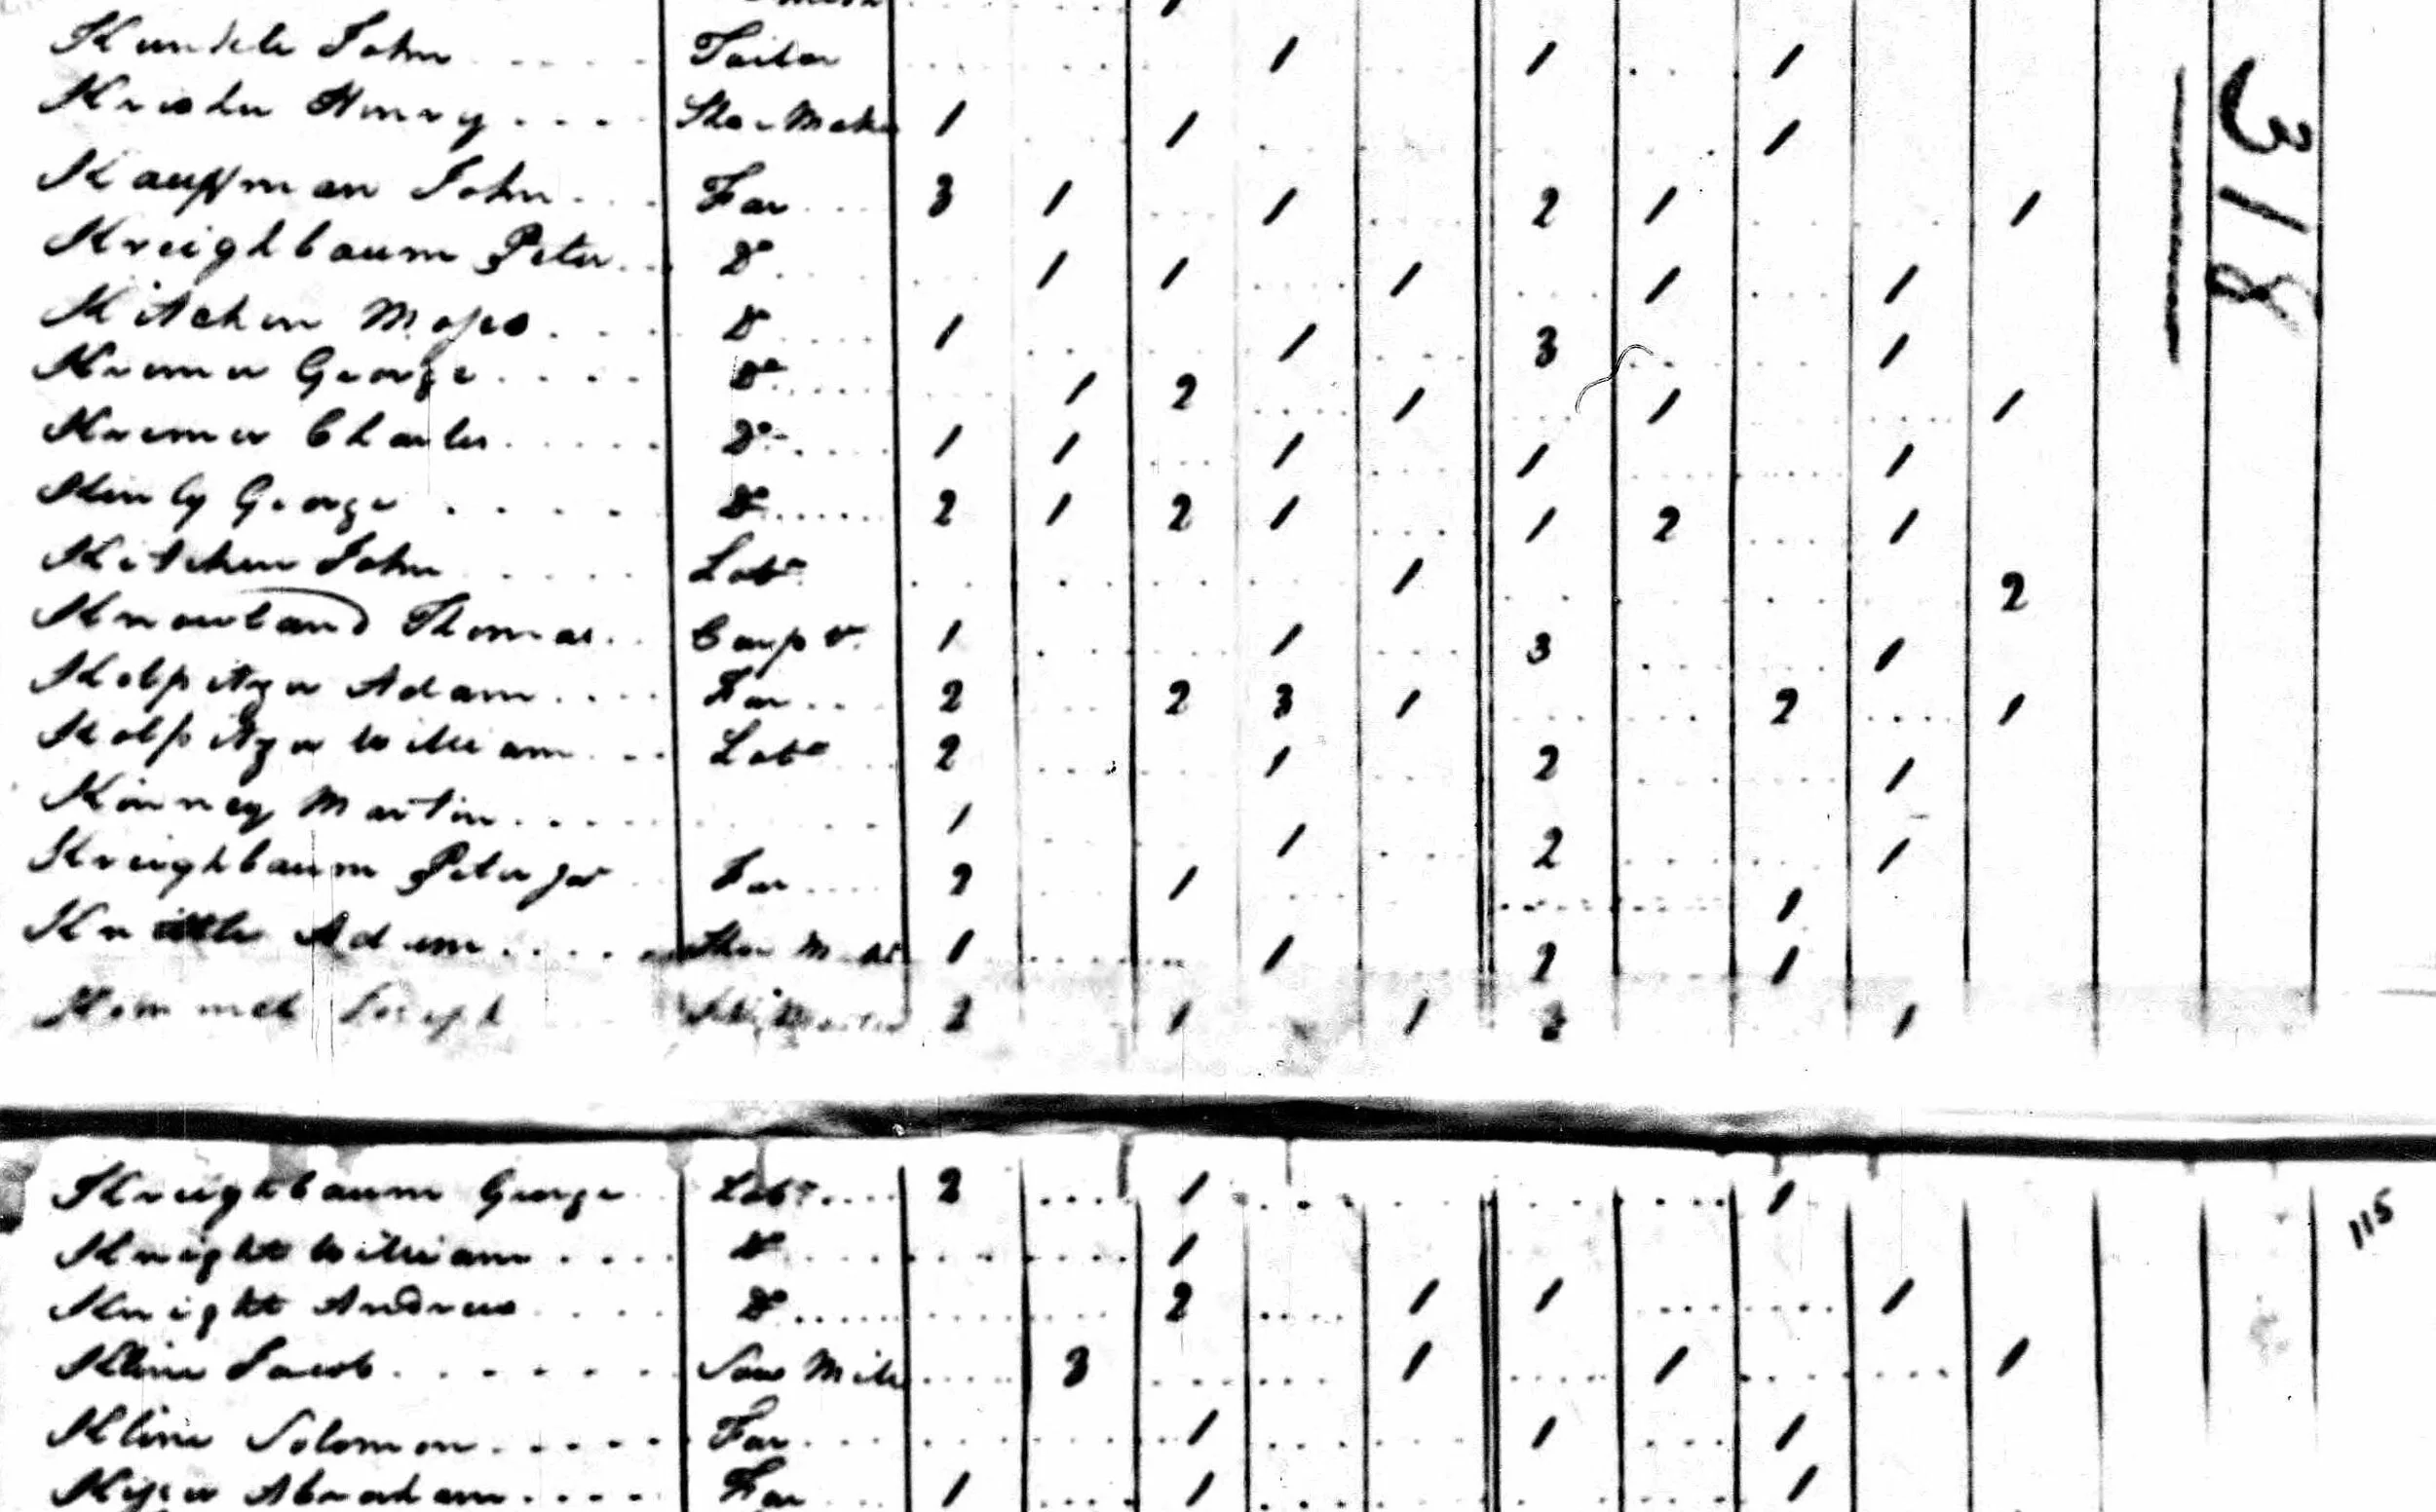 Kunkele John Tailor 1 1 1
Henry Shoe Maker 1 1 1
Kauffman John Far 3 1 1 2 1 1
Kreighbaum Peter Do 1 1 1 1 1
Kitchen Moses Do 1 1 3 1
Kremer George Do 1 2 1 1 1
Kremer Charles Do 1 1 1 1 1
George Do 2 1 2 1 1 2 1
Kitchen John Labr 1 2
Knowland Thomas Carpr 1 1 3 1
Kolpetzer Adam Far 2 2 3 1 2 1
Kolpetzer William Labr 2 1 2 1
Kinney Martin 1 1 2 1
Kreighbaum Peter Jnr Far 2 1 1
Adam Shoe Makr 1 1 2 1
Joseph 2 1 1 1
318
Kreighbaum George Labr 2 1 1
Knight William Do 1
Knight Andrew Do 2 1 1 1
Kline Jacob Saw Mill 3 1 1 1
Kline Solomon Far 1 1 1
Abraham Far 1 1 1
115